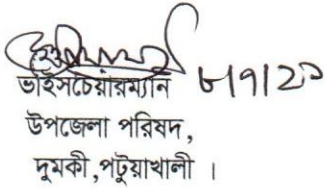 ভাইসচেয়ারম্যান ৮।৭।২০
উপজেলা পরিষদ,
দুমকী,পটুয়াখালী ।